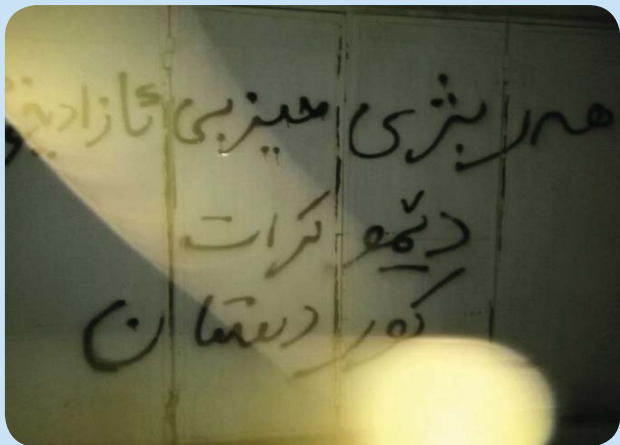 هەر بژی حیزبی ئازادیخو
دێمو کرات
کوردستان